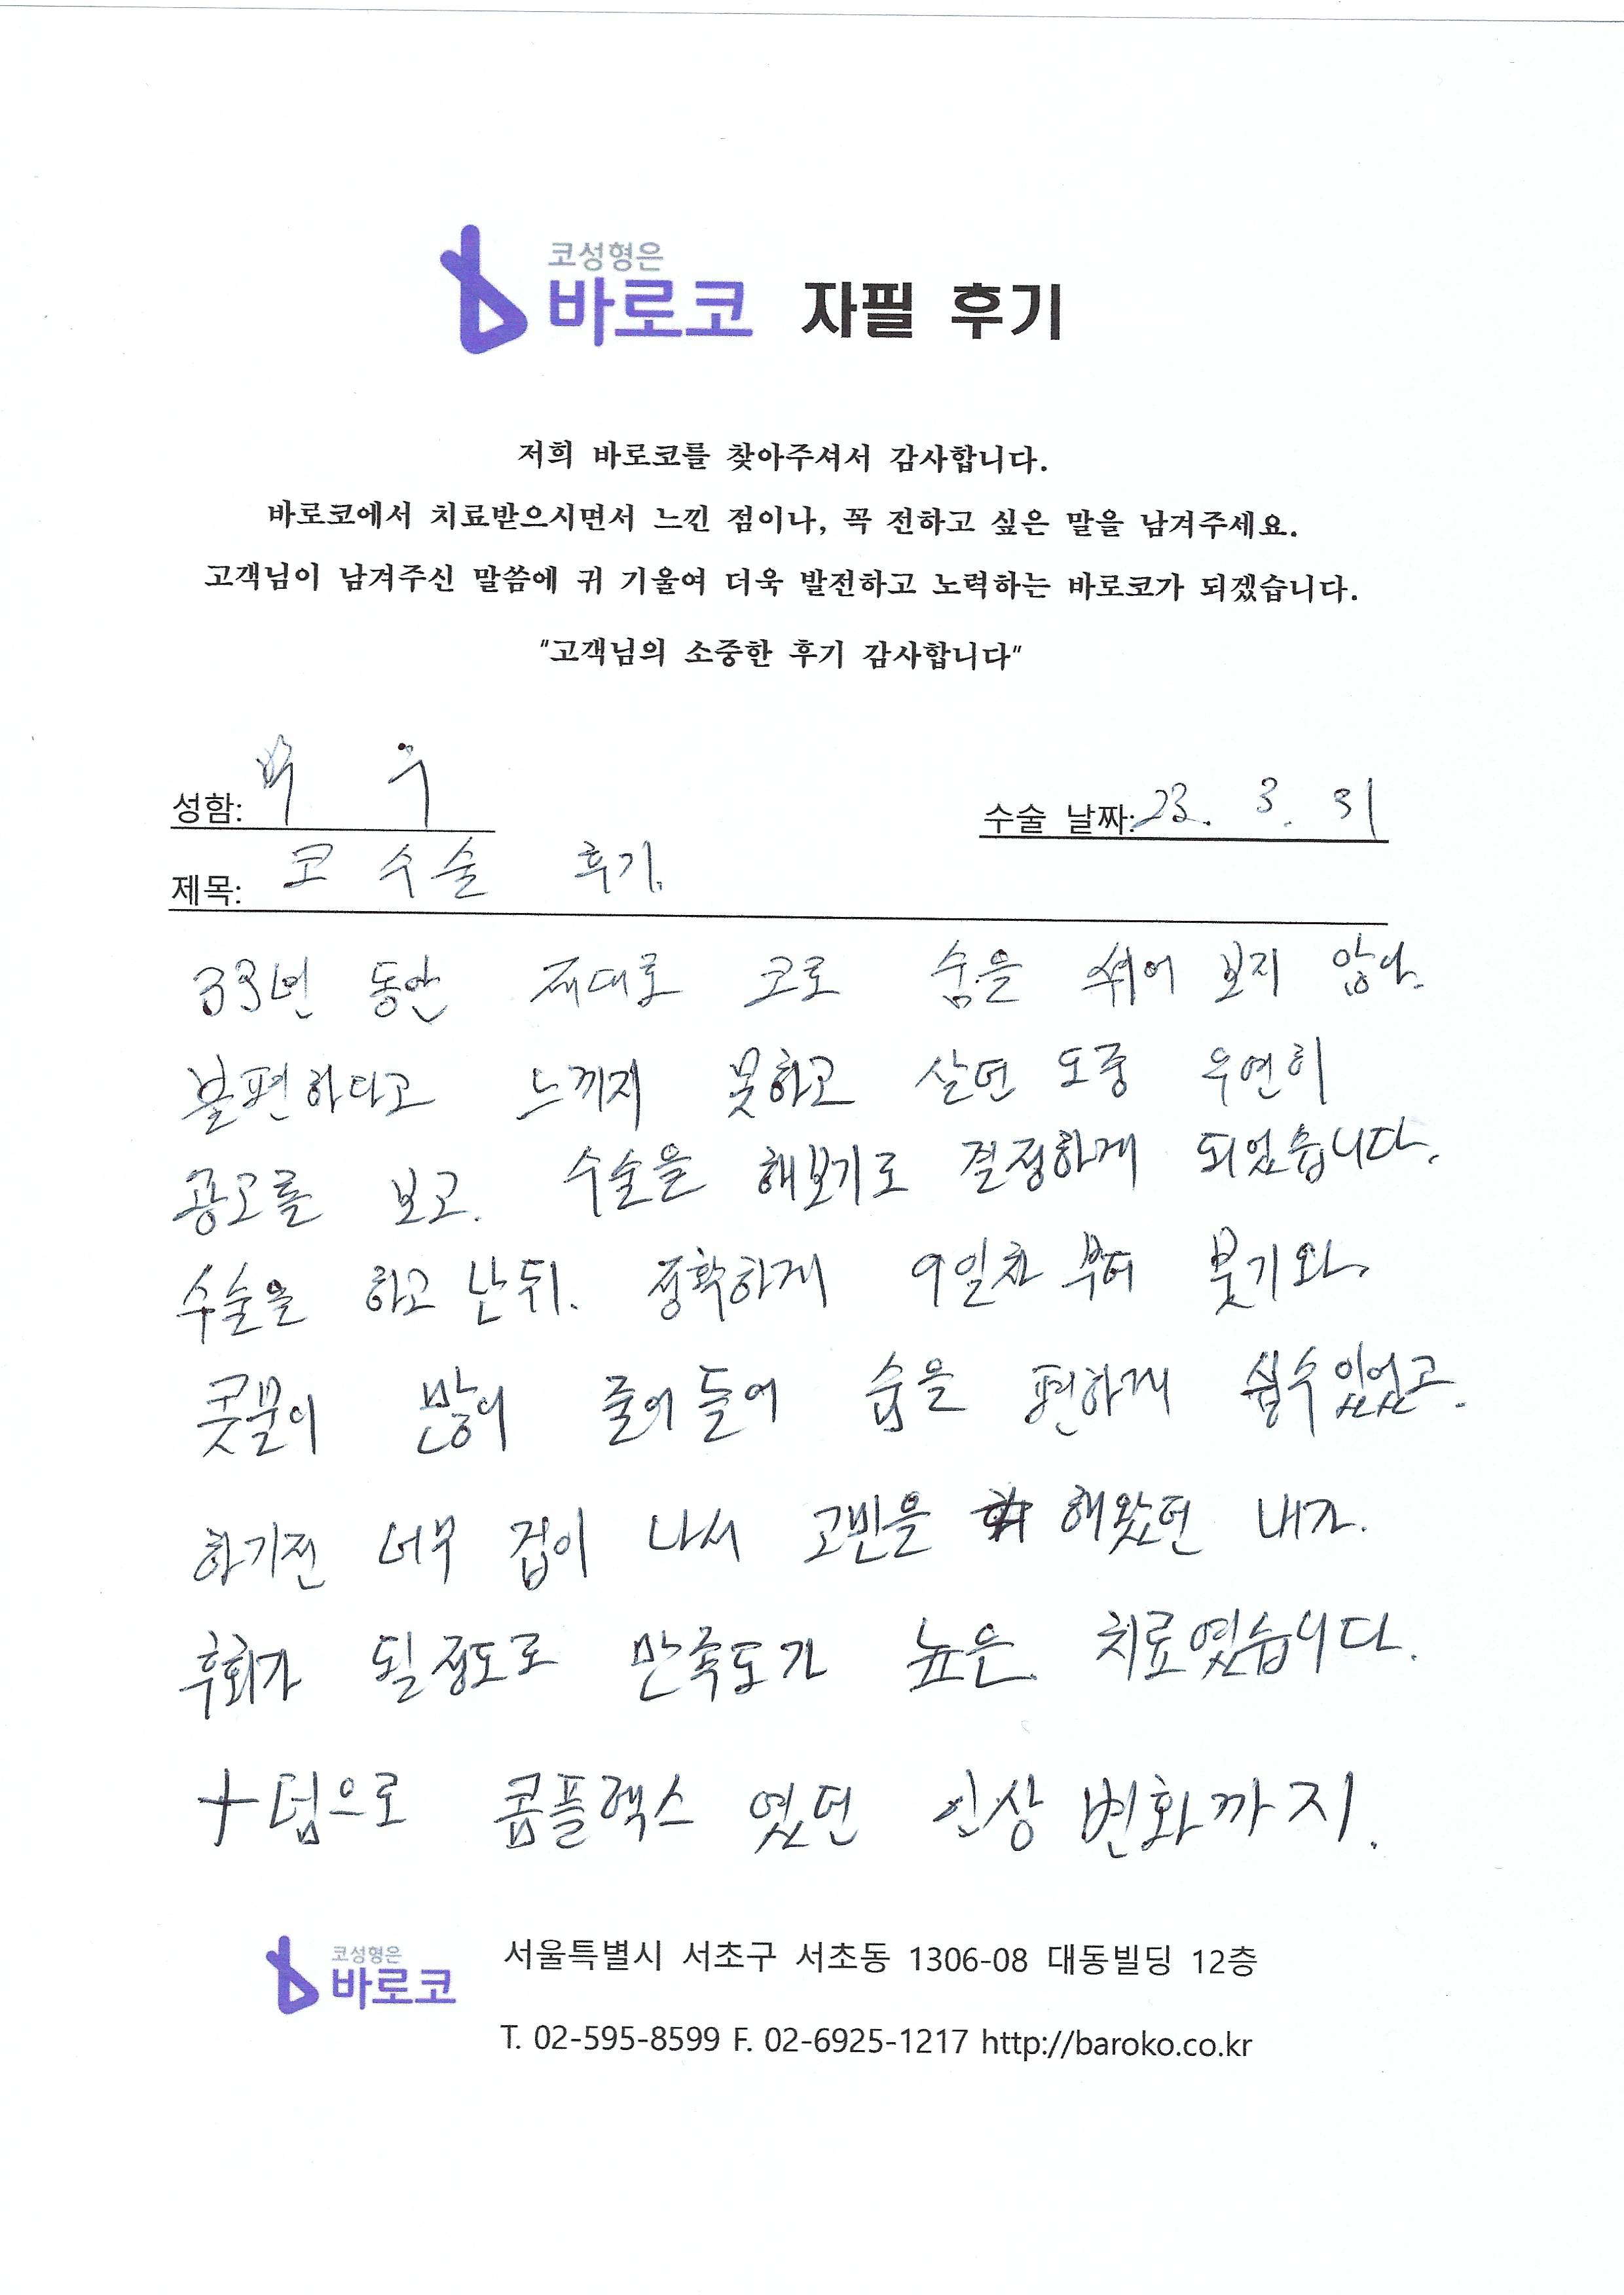 코성형은
바로코 자필 후기
저희 바로코를 찾아주셔서 감사합니다.
바로코에서 치료받으시면서 느낀 점이나, 꼭 전하고 싶은 말을 남겨주세요.
고객님이 남겨주신 말씀에 귀 기울여 더욱 발전하고 노력하는 바로코가 되겠습니다.
"고객님의 소중한 후기 감사합니다"
성함: 박 우 수술 날짜: 23. 3. 31
제목: 코 수술 후기.
33년 동안 제대로 코로 숨을 쉬어 보지 않아.
불편하다고 느끼지 못하고 살던 도중 우연히
광고를 보고. 수술을 해보기로 결정하게 되었습니다.
수술을 하고 난뒤. 정확하게 9일차 부터 붓기와
콧물이 많이 줄어들어 숨을 편하게 쉴수있었고.
하기전 너무 겁이 나서 고민을 해왔던 내가.
후회가 될정도로 만족도가 높은. 치료였습니다.
+덤으로 콤플렉스 였던 인상 변화까지.
코성형은
바로코
서울특별시 서초구 서초동 1306-08 대동빌딩 12층
T. 02-595-8599 F. 02-6925-1217 http://baroko.co.kr